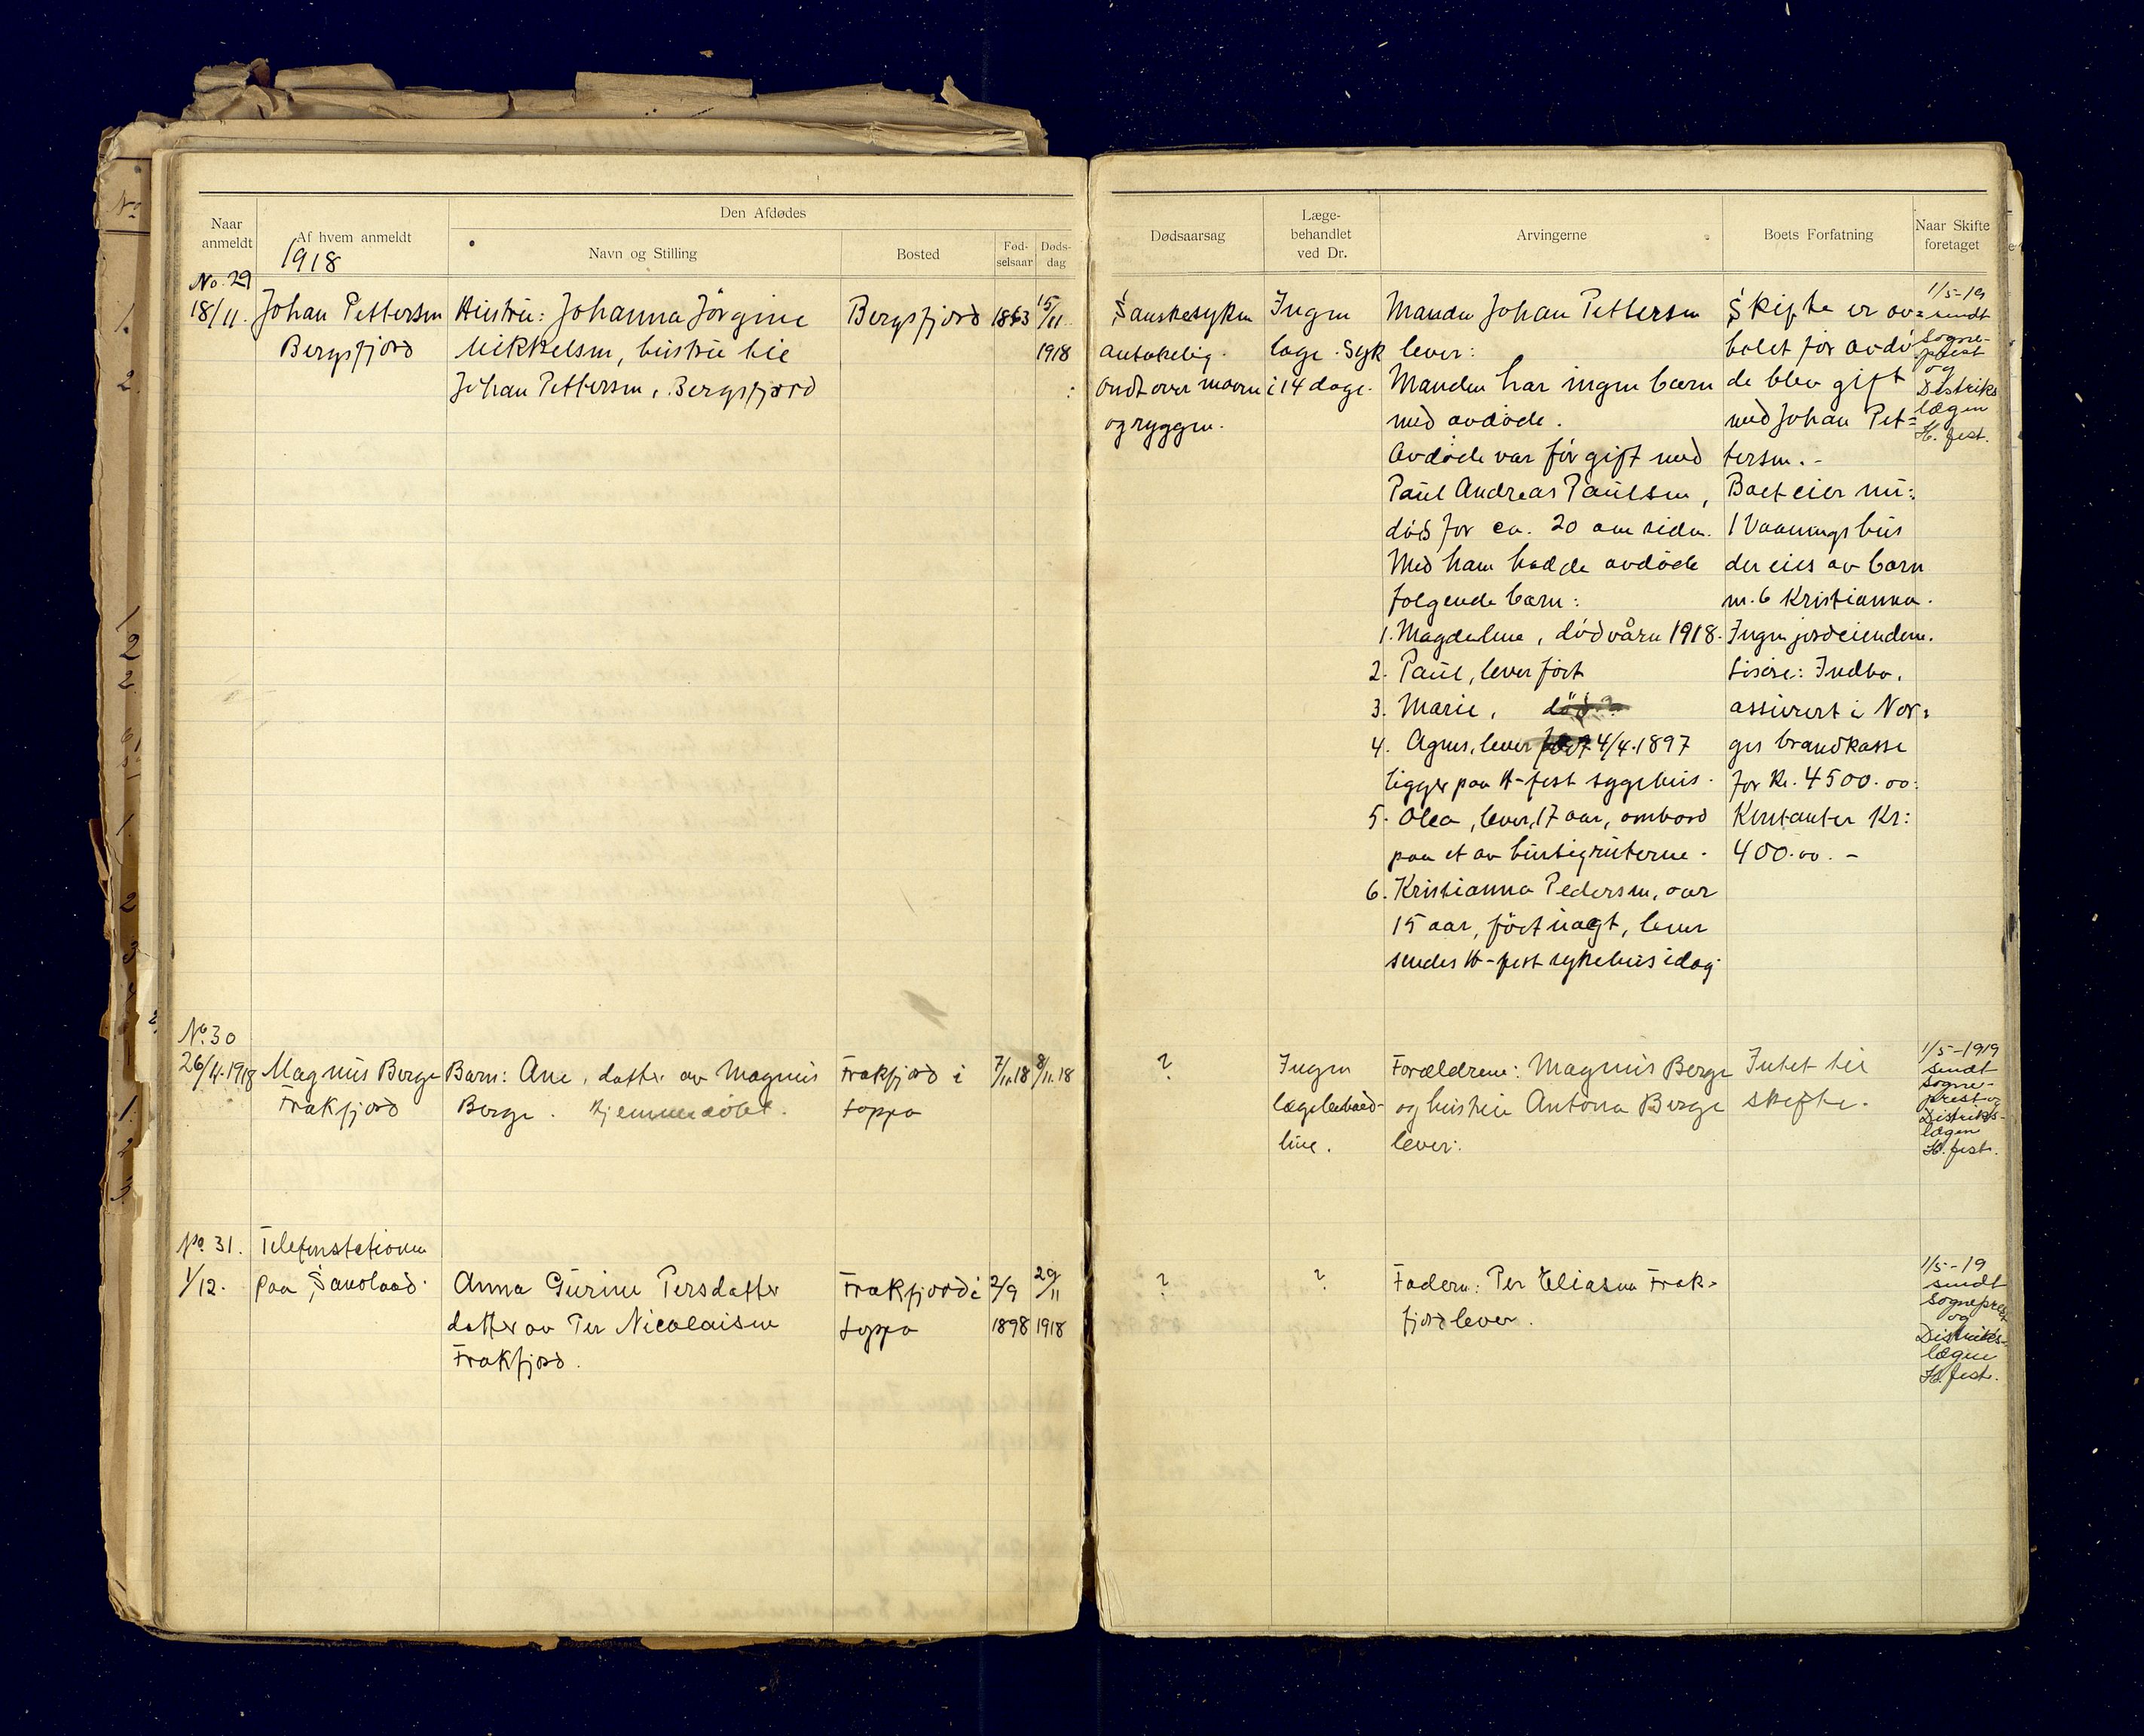 Naar anmeldt
Af hvem anmeldt
1918
Den Afdødes
Navn og Stilling
Bosted
Fød-selsaar
Døds-dag
Dødsaarsag
Læge-behandlet ved Dr.
Arvingerne
Boets Forfatning
Naar Skifte foretaget
No. 29
18/11.
Johan Pettersen
Bergsfjord
Hustru: Johanna Jørgine
Mikkelsen, hustru til
Johan Pettersen, Bergsfjord
Bergsfjord
1863
15/11
1918
Spanskesyken
antakelig.
ondt over maven
og ryggen.
Ingen
læge. Syk
i 14 dage.
Manden Johan Pettersen
lever:
Manden har ingen barn
med avdøde.
Avdøde var før gift med
Paul Andreas Paulsen,
død for ca. 20 aar siden.
Med ham hadde avdøde
følgende barn:
1. Magdalene, død våren 1918.
2. Paul, lever født
3. Marie,
4. Agnes, lever født 4/4.1897
ligger paa H-fest sygehus.
5. Olea, lever, 17 aar, ombord
paa et av hurtigruterne.
6. Kristianna Pedersen, over
15 aar, født uægt, lever
sendes H-fest sykehus idag
Skifte er av=
holdt før avdø
de blev gift
med Johan Pet=
tersen. -
Boet eier nu:
1 Vaaningshus
der eies av barn
nr. 6 Kristianna.
Ingen jordeiendom.
Løsøre: Indbo.
assurert i Nor=
ges brandkasse
for Kr. 4500.00.
Kontanter Kr:
400.00. -
1/5-19
sendt
Sogne-
prest
og
Distrikts
lægen
H. fest.
No. 30
26/11.1918
Magnus Berge
Frakfjord
Barn: Ane, datter av Magnus
Berge. Hjemmedøbt.
Frakfjord i
Loppa
7/11.18
8/11.18
?
Ingen
lægebehand-
ling.
Forældrene: Magnus Berge
og hustru Antona Berge
lever.
Intet til
skifte.
1/5-1919
sendt
Sogne-
prest og
Distrikts-
lægen
H. fest.
No. 31.
1/12.
Telefonstationen
paa Sandland.
Anna Gurine Persdatter
datter av Per Nicolaisen
Frakfjord.
Frakfjord i
Loppa
2/9
1898
29/11
1918
?
?
Faderen: Per Eliasen Frak-
fjord lever.
1/5-19
sendt
Sogneprest
og
Distrikts-
lægen
H. fest.